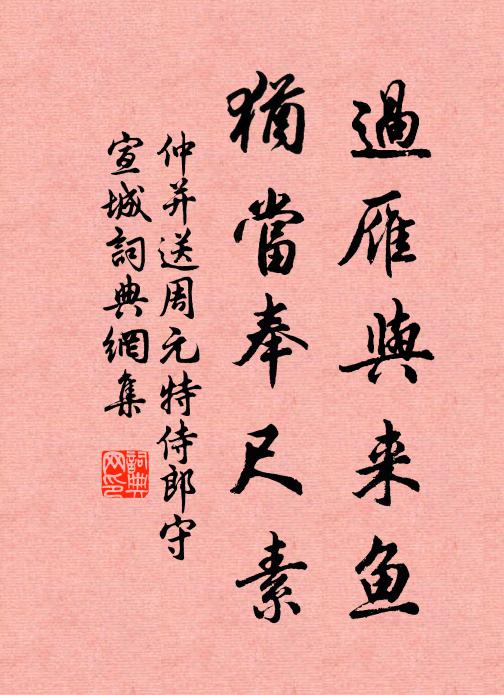 過雁與来鱼
猶當奉尺素
仲并送周元特侍郎守
宣城詞典網集
詞典网印